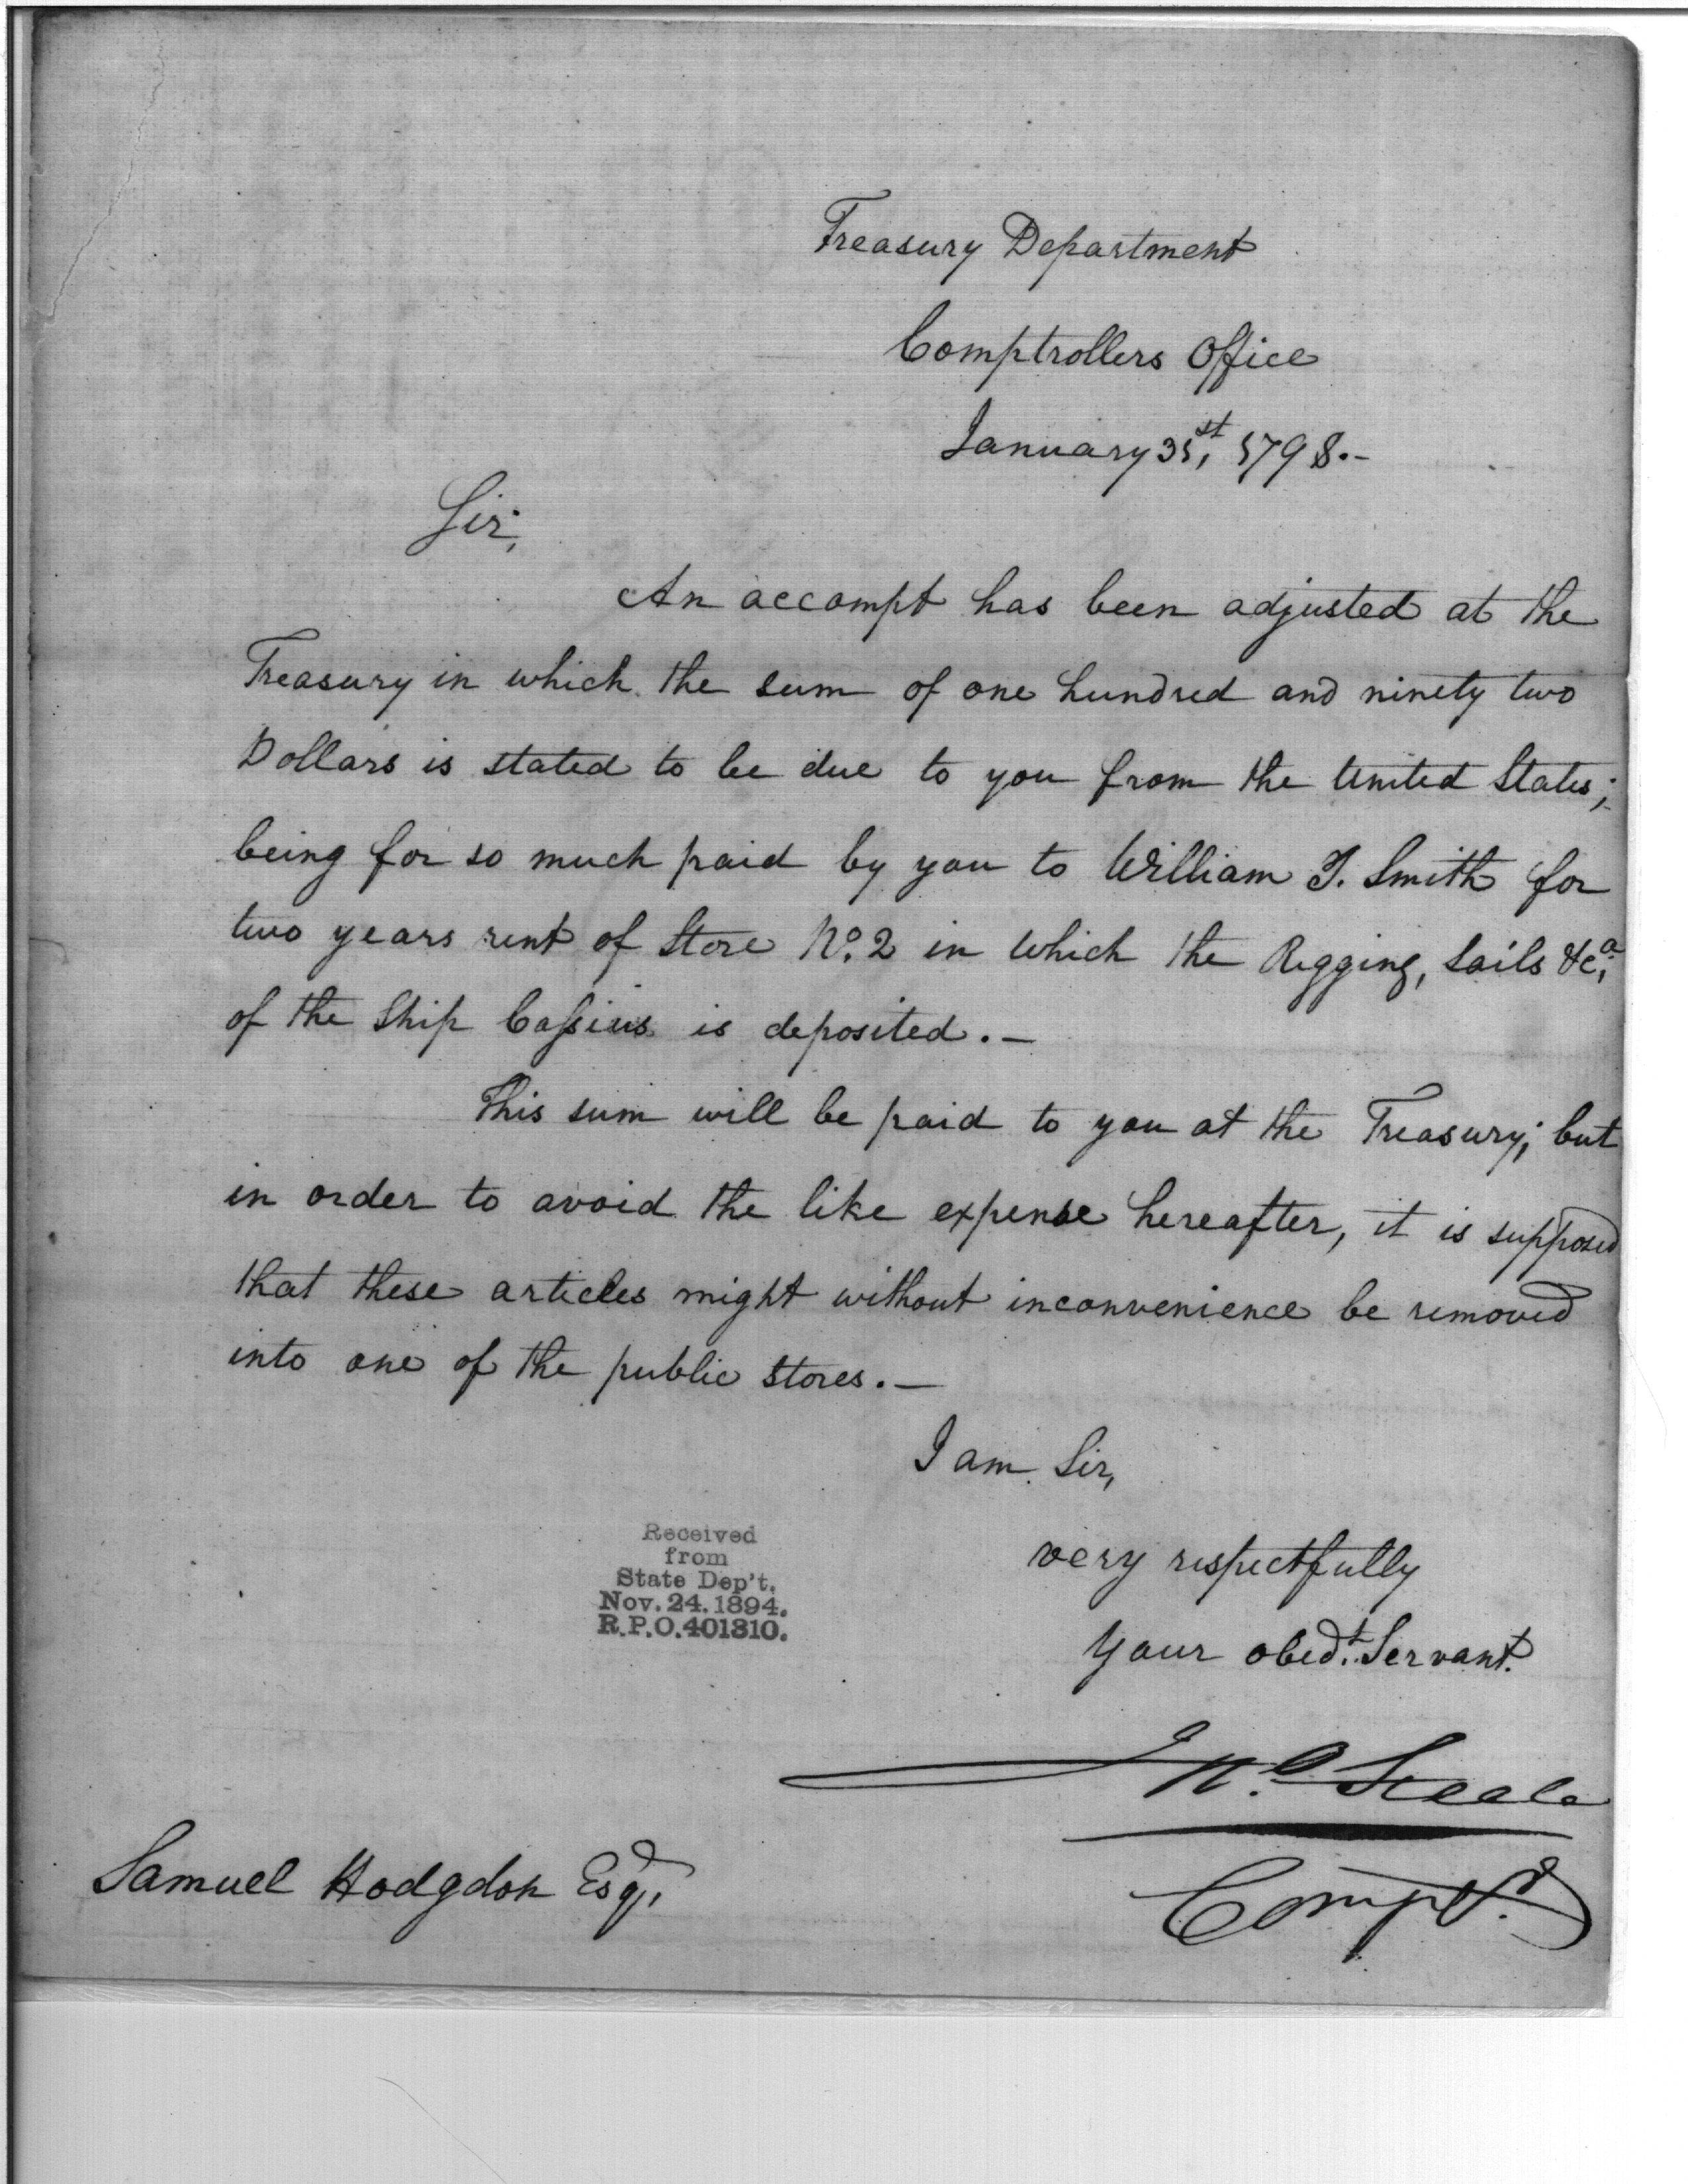 Treasury Department
Comptrollers Office
January 31st, 1798.-
Sir,
An accompt has been adjusted at the
Treasury in which the sum of one hundred and ninety two
Dollars is stated to be due to you from the United States;
being for so much paid by you to William T. Smith for
two years rent of Store No. 2 in which the Rigging, Sails &ca;
of the Ship Cassius is deposited.-
This sum will be paid to you at the Treasury; but
in order to avoid the like expense hereafter, it is supposed
that these articles might without inconvenience be removed
into one of the public Stores.-
I am Sir,
very respectfully
Your obedt. Servant.
Jno. Steele
Compr.
Received
from
State Dep't.
Nov. 24. 1894.
R.P.O.401310.
Samuel Hodgdon Esqr,